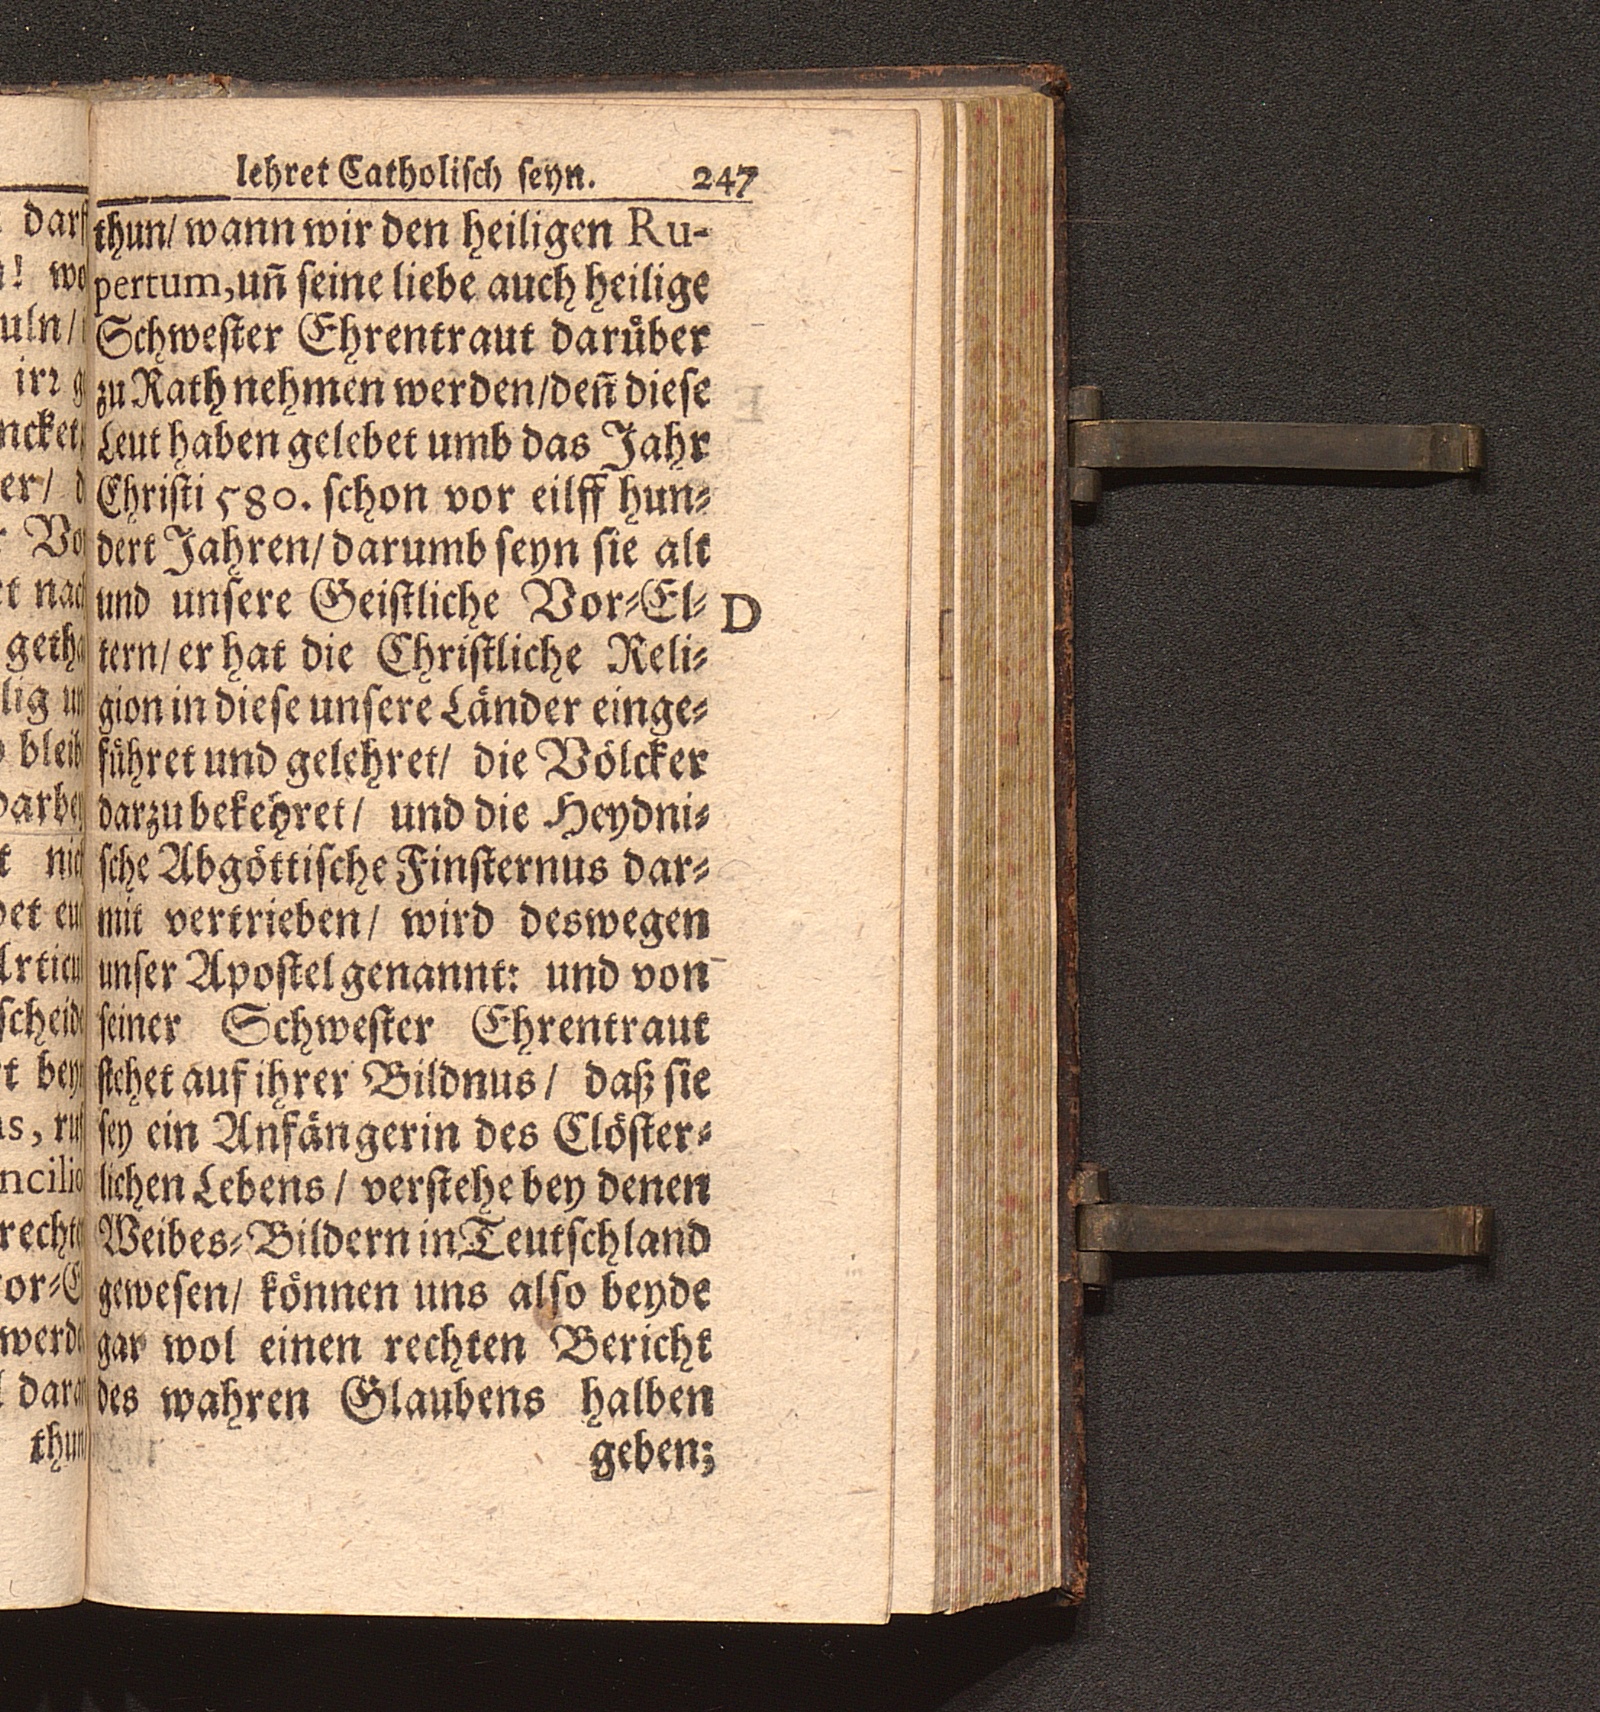 lehret Catholiſch ſeyn. 247
thun/ wann wir den heiligen Ru-
pertum, uñ ſeine liebe auch heilige
Schweſter Ehrentraut daruͤber
zu Rath nehmen werden/ deñ dieſe
Leut haben gelebet umb das Jahr
Chriſti 580. ſchon vor eilff hun⸗
dert Jahren/ darumb ſeyn ſie alt
und unſere Geiſtliche Vor⸗El⸗
D
tern/ er hat die Chriſtliche Reli⸗
gion in dieſe unſere Laͤnder einge⸗
fuͤhret und gelehret/ die Voͤlcker
darzu bekehret/ und die Heydni⸗
ſche Abgoͤttiſche Finſternus dar⸗
mit vertrieben/ wird deswegen
unſer Apoſtel genannt: und von
ſeiner Schweſter Ehrentraut
ſtehet auf ihrer Bildnus/ daß ſie
ſey ein Anfaͤngerin des Cloͤſter⸗
lichen Lebens/ verſtehe bey denen
Weibes⸗Bildern in Teutſchland
geweſen/ koͤnnen uns alſo beyde
gar wol einen rechten Bericht
des wahren Glaubens halben
geben;